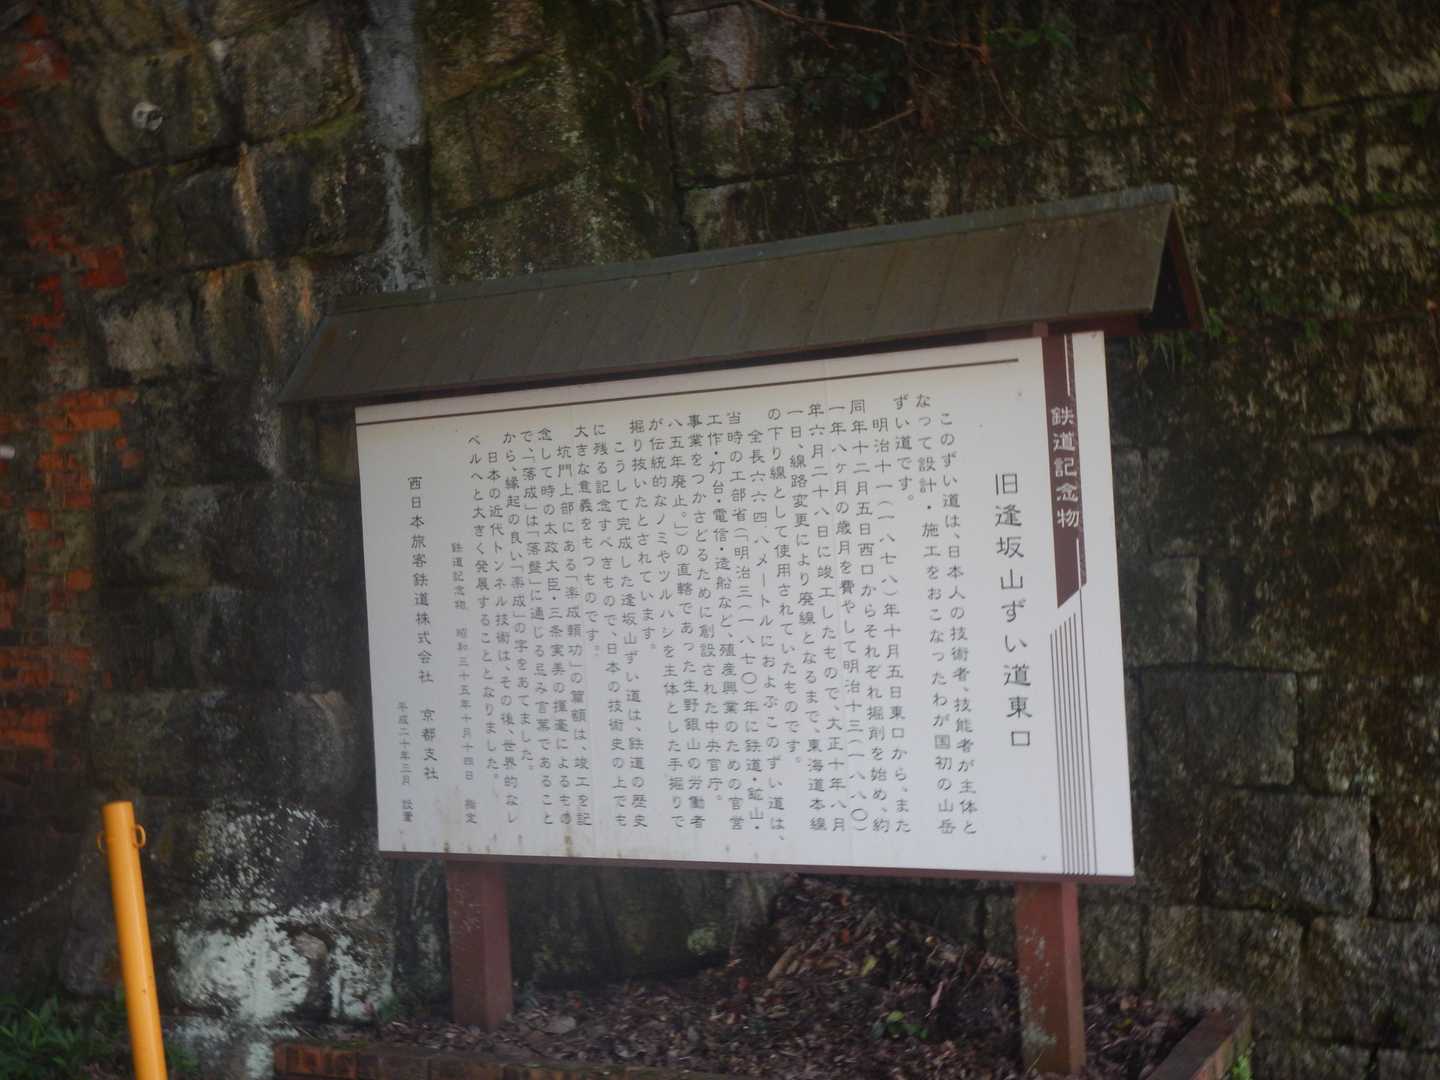 鉄道記念物
旧逢坂山ずい道東口
このずい道は、日本人の技術者、技能者が主体と
なって設計・施工をおこなったわが国初の山岳
ずい道です。
明治十一(一八七八)年十月五日東口から、また
同年十二月五日西口からそれぞれ掘削を始め、約
一年八ヶ月の歳月を費やして明治十三(一八八〇)
年六月二十八日に竣工したもので、大正十年八月
一日、線路変更により廃線となるまで、東海道本線
の下り線として使用されていたものです。
全長六六四・八メートルにおよぶこのずい道は、
当時の工部省(「明治三(一八七〇)年に鉄道・鉱山・
工作・灯台・電信・造船など、殖産興業のための官営
事業をつかさどるために創設された中央官庁。
八五年廃止。」)の直轄であった生野銀山の労働者
が伝統的なノミやツルハシを主体とした手掘りで
掘り抜いたとされています。
こうして完成した逢坂山ずい道は、鉄道の歴史
に残る記念すべきもので、日本の技術史の上でも
大きな意義をもつものです。
坑門上部にある「楽成頼功」の篆額は、竣工を記
念して時の太政大臣・三条実美の揮毫によるもの
で、「落成」は「落盤」に通じる忌み言葉であること
から、縁起の良い「楽成」の字をあてました。
日本の近代トンネル技術は、その後、世界的なレ
ベルへと大きく発展することとなりました。
鉄道記念物 昭和三十五年十月十四日 指定
西日本旅客鉄道株式会社 京都支社
平成二十年三月 設置